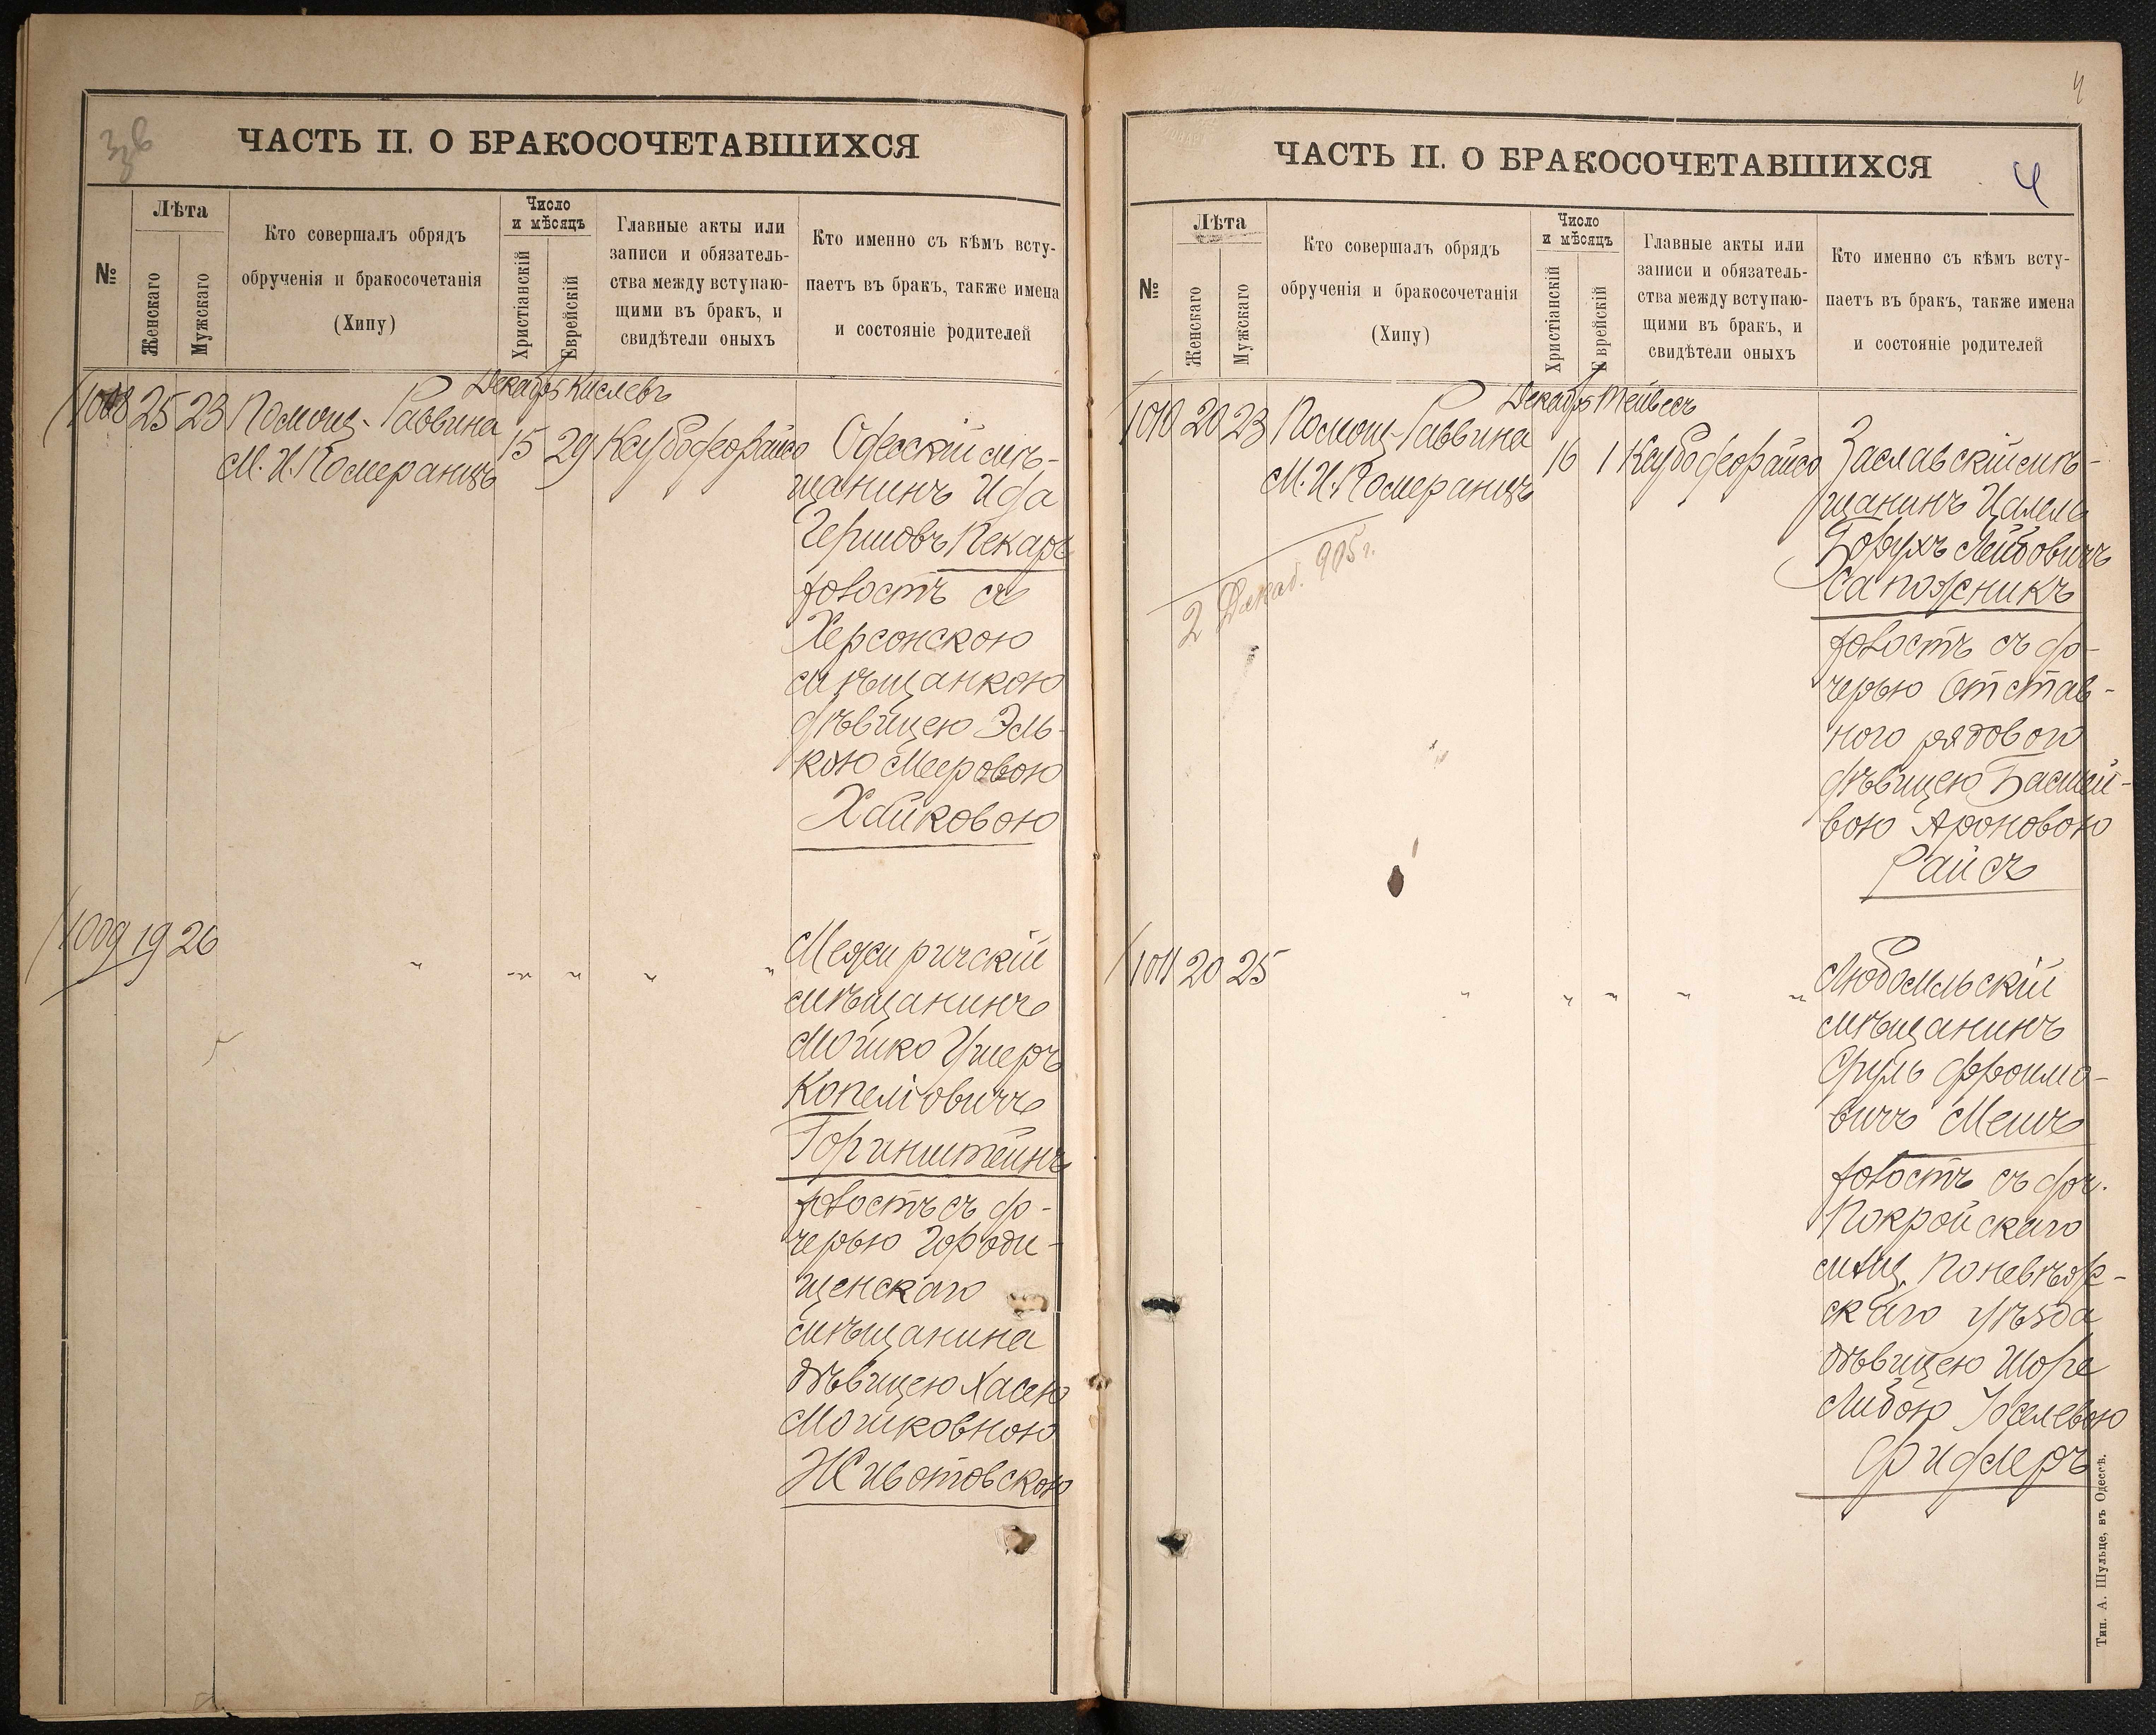 ЧАСТЬ II. О БРАКОСОЧЕТАВШИХСЯ
№
Лѣта
Женскаго
Мужскаго
Кто совершалъ обрядъ
обрученія и бракосочетанія
(Хипу)
Число
и мѣсяцъ
Христіанскій
Еврейскій
Главные акты или
записи и обязатель-
ства между вступаю-
щими въ бракъ, и
свидѣтели оныхъ
Кто именно съ кѣмъ всту-
паетъ въ бракъ, также имена
и состояніе родителей
1008 25 23
Помощ. Раввина
М. И. Померанцъ
Декабрь Кислевъ
15 29
Одесскій мѣ-
щанинъ
Гершовъ Пекарь
холостъ съ
Херсонскою
мѣщанкою
дѣвицею Эль-
кою Мееровою
Хайковою
1009 19 26
" " " " "
Межиричскій
мѣщанинъ
Мошко Ушеръ
Копелiовичъ
Горинштейнъ
холостъ съ до-
черью Городи-
щенскаго
мѣщанина
дѣвицею Хасею
Мошковною
Животовскою
ЧАСТЬ II. О БРАКОСОЧЕТАВШИХСЯ
4
4
№
Лѣта
Женскаго
Мужскаго
Кто совершалъ обрядъ
обрученія и бракосочетанія
(Хипу)
Число
и мѣсяцъ
Христіанскій
Еврейскій
Главные акты или
записи и обязатель-
ства между вступаю-
щими въ бракъ, и
свидѣтели оныхъ
Кто именно съ кѣмъ всту-
паетъ въ бракъ, также имена
и состояніе родителей
1010 20 23
Помощ. Раввина
М. И. Померанцъ
Декабрь Тейвесъ
16 1
2 Декаб. 905 г.
Заславскій мѣ-
щанинъ Цалель
Борухъ Лейбовичъ
Сапожникъ
холостъ съ до-
черью отстав-
ного рядового
дѣвицею Басшей-
вою Ароновою
Райсъ
1011 20 25
" " " " "
Любомльскій
мѣщанинъ
Сруль Фроимо-
вичъ Мешъ
холостъ съ доч.
Покройскаго
мѣщ. Поневѣж-
скаго уѣзда
дѣвицею Шоре
Либою Іоселевою
Фидлеръ
Тип. А. Шульце, въ Одессѣ.